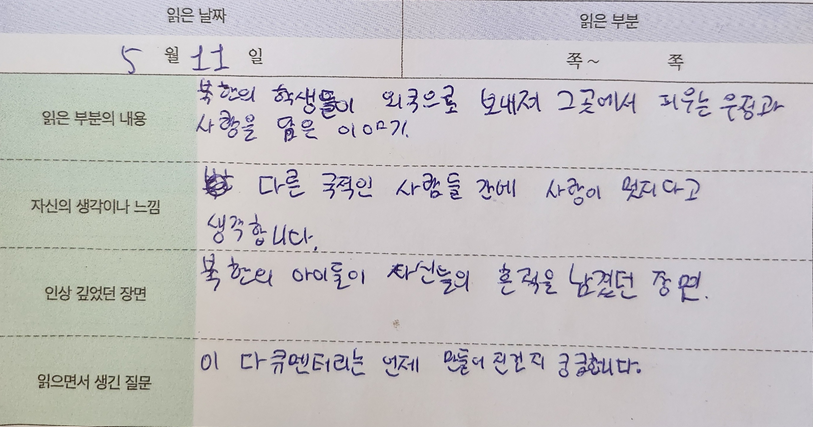 읽은 날짜 읽은 부분
5 월 11 일 쪽~ 쪽
읽은 부분의 내용
북한의 학생들이 외국으로 보내져 그곳에서 피우는 우정과
사랑을 담은 이야기.
자신의 생각이나 느낌
다른 국적인 사람들 간에 사랑이 멋지다고
생각합니다.
인상 깊었던 장면
북한의 아이들이 자신들의 흔적을 남겼던 장면.
읽으면서 생긴 질문
이 다큐멘터리는 언제 만들어진건지 궁금합니다.